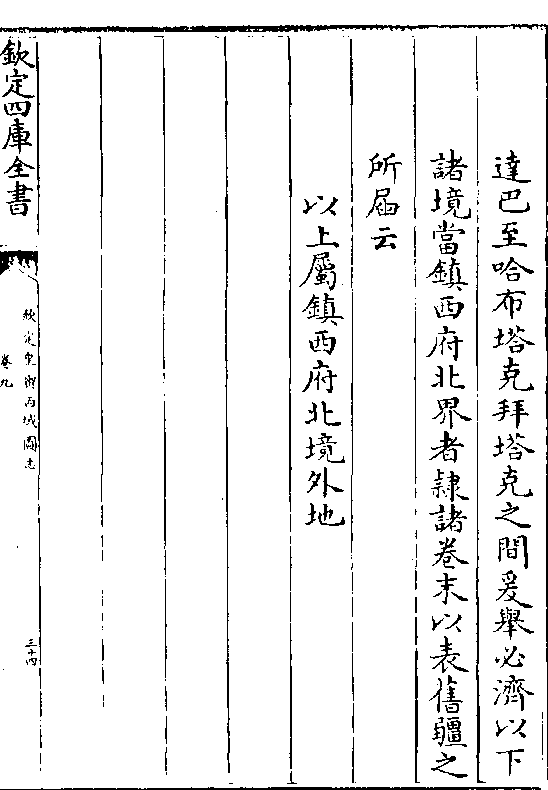 達巴至哈布塔克拜塔克之間爰舉必濟以下
諸境當鎮西府北界者隷諸卷末以表舊疆之
所屆云
以上屬鎮西府北境外地
欽定四庫全書
欽定皇輿西域圖志
卷九
三十四